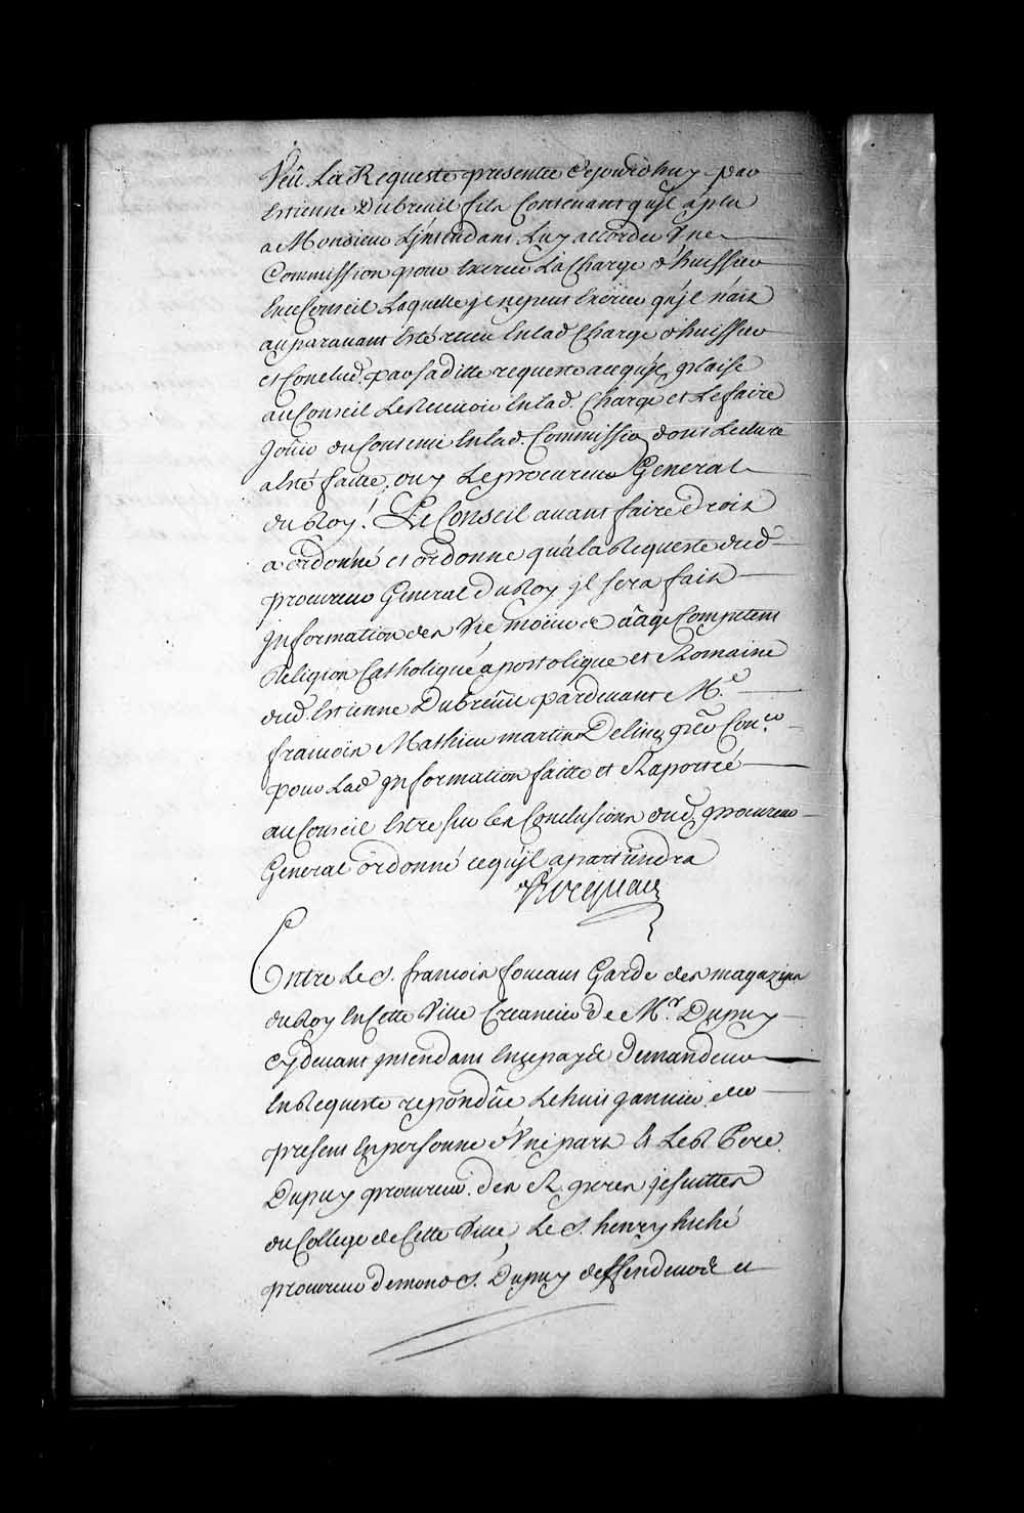 Veû La Requeste presentée cejourdhuy par
Estienne Dubreuil fils Contenant qu'jl a plu
a Monsieur L'jntendant Luy accorder Vne
Commission pour Exercer La Charge d'huissier
En ce Conseil Laquelle jl ne peut Exercer qu'jl n'ait
auparavant Esté receu En lad. Charge d'huissier
et Conclud. par saditte requeste a ce qu'jl plaise
au Conseil Le Recevoir En lad. Charge et Le faire
Joüir du Contenu En lad. Commission dont Lecture
a Esté faitte, ouy Le procureur General
du Roy! Le Conseil avant faire droit
a ordonné et ordonne qu'à la Requeste dud.
procureur General du Roy jl sera fait
jnformation des Vie moeurs âage Competent
Religion Catholique apostolique et Romaine
dud. Estienne Dubreüil pardevant Me.
francois Mathieu martin Delino Con.er
pour Lad jnformation faitte et Raportée
au Conseil Estre sur les Conclusions dud. procureur
General ordonné ce qu'jl apartiendra

Entre Le S. francois foucault Garde des magazins
du Roy En Cette Ville Creancier De Mr. Dupuy
Cy devant jntendant En ce païs Demandeur
En Requeste repondüe Le huit janvier der
present En personne d'Vne part Et Le R Pere
Dupuy procureur des R. peres jesuittes
du College de Cette Ville, Le S. henry hiché
procureur de mond S. Dupuy deffendeurs et